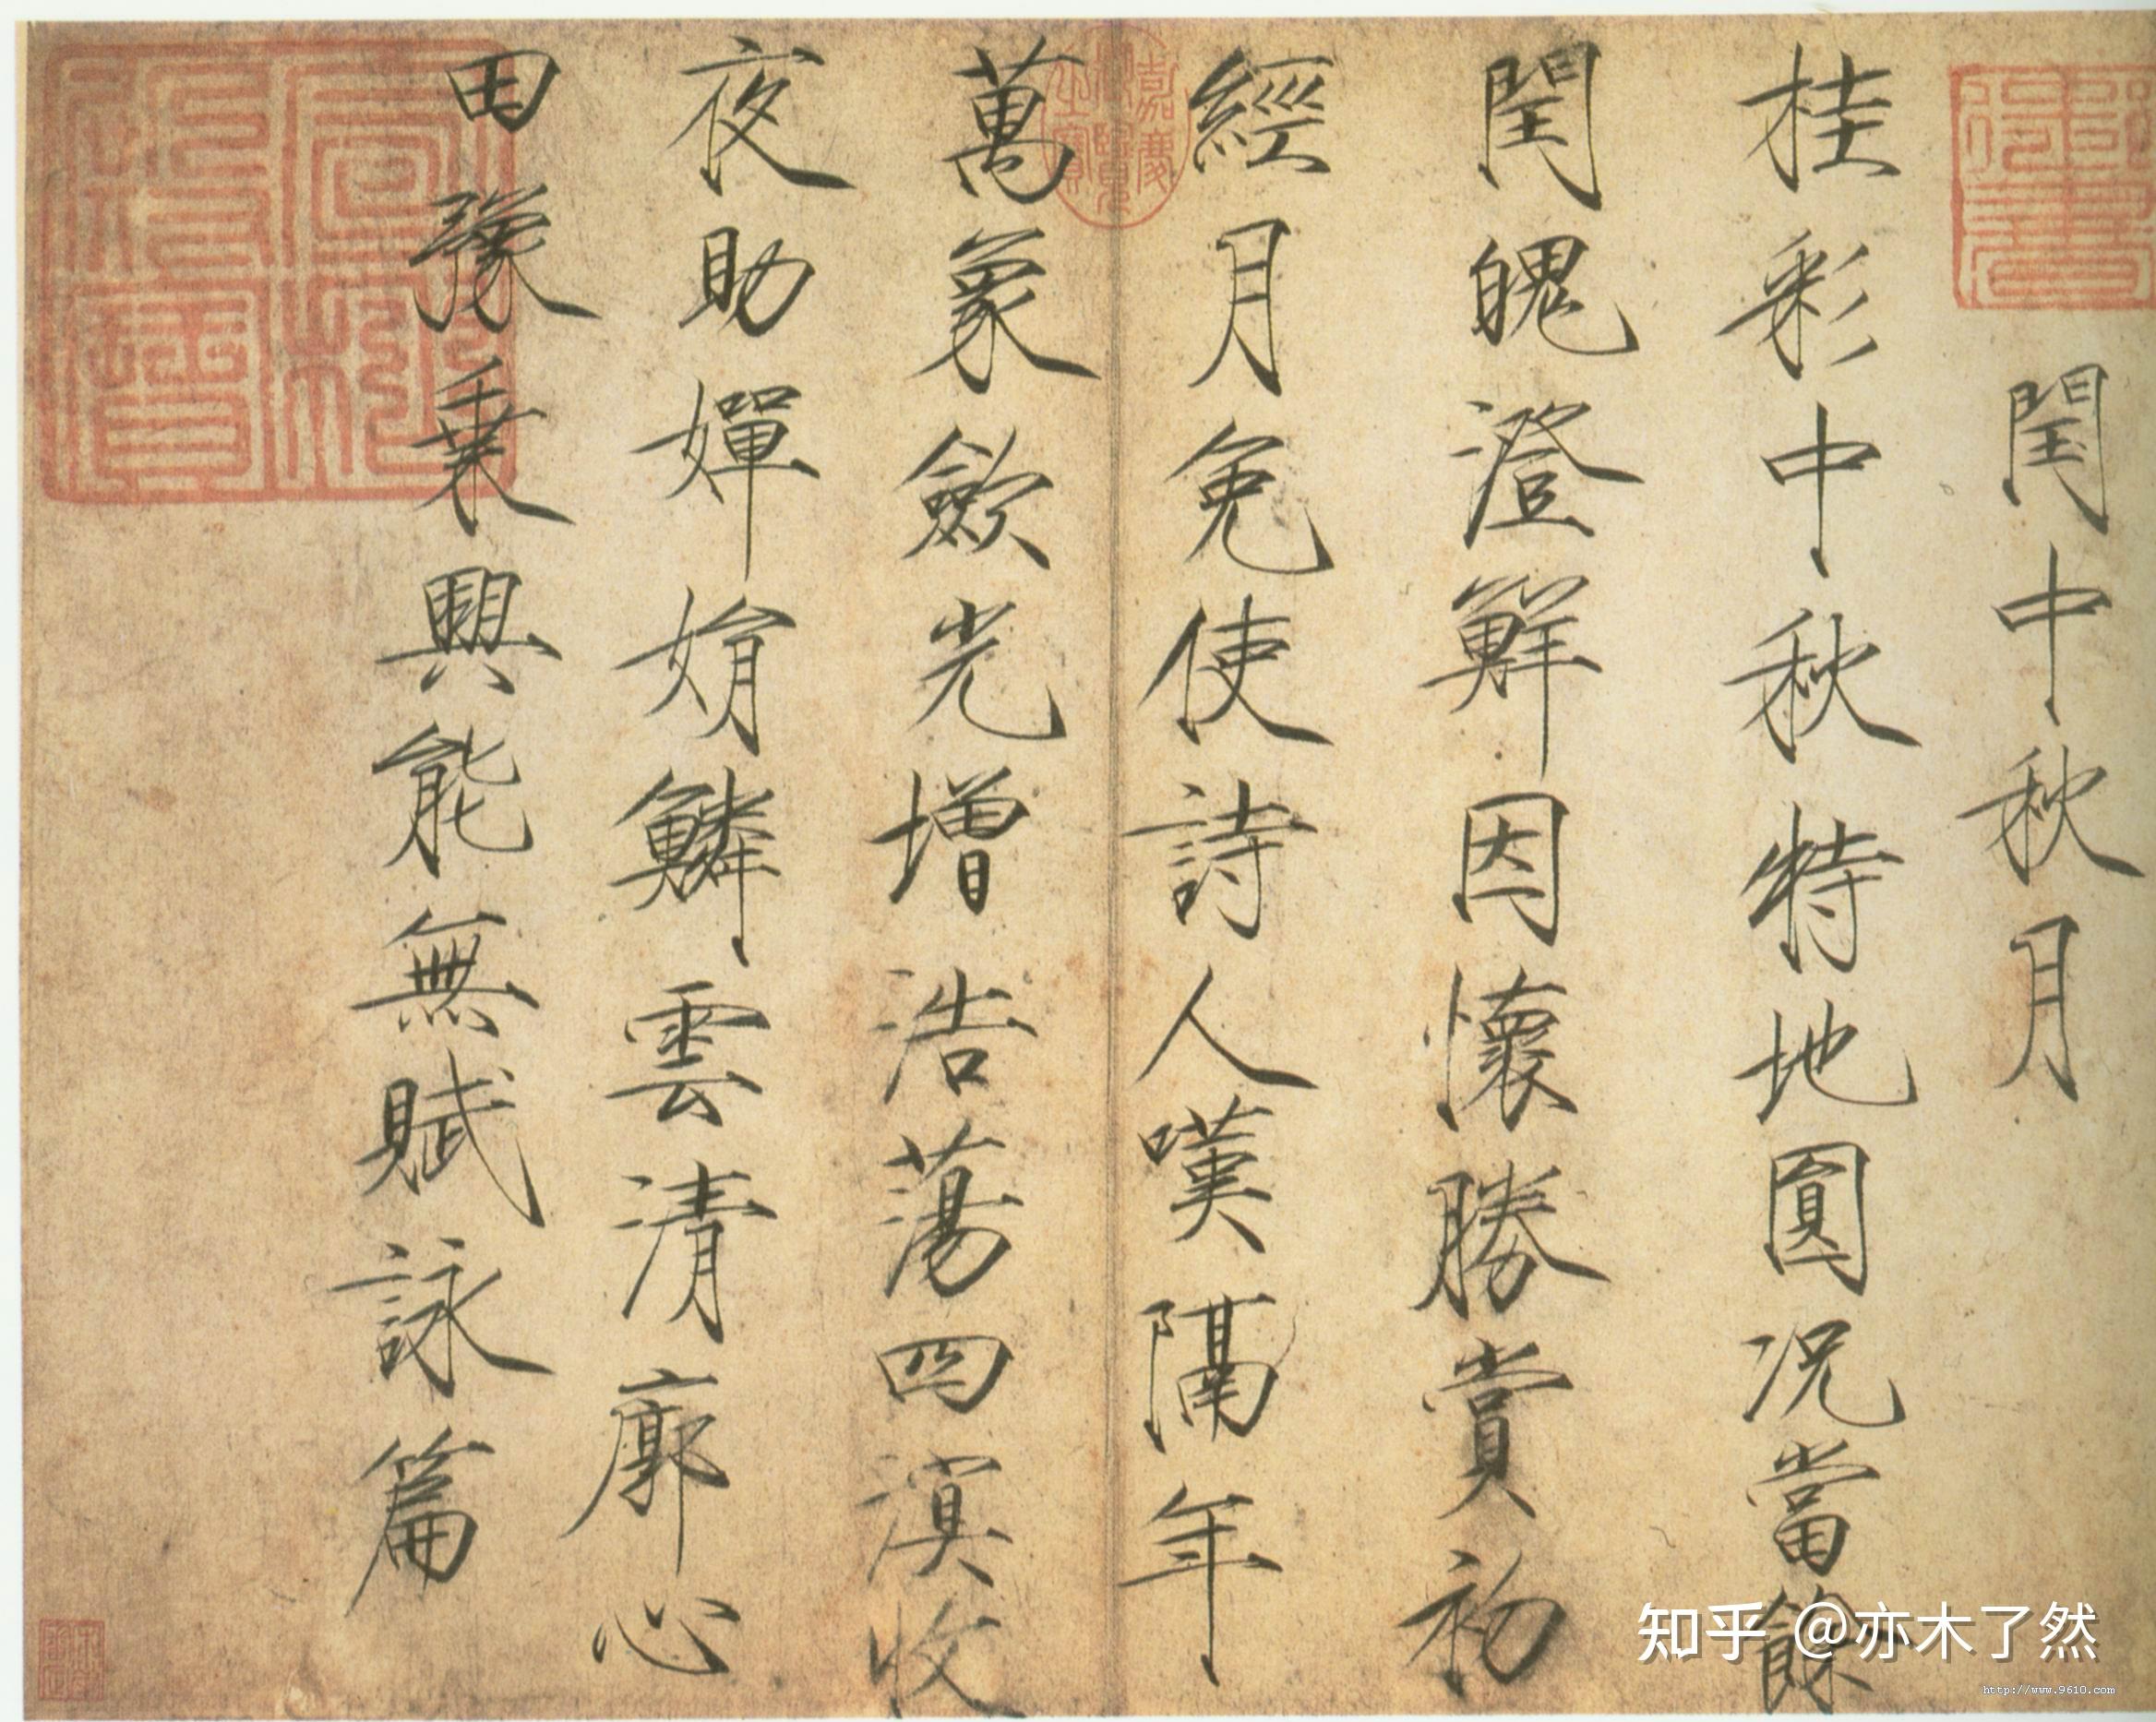 閏中秋月
桂彩中秋特地圓况當餘
閏魄澄鮮因懷勝賞初
經月免使詩人嘆隔年
萬象斂光增浩蕩四溟收
夜助嬋娟鱗雲清廓心
田豫乗興能無賦詠篇
嘉慶御覽之寶
宣統御覽之寶
知乎 @亦木了然
http://www.9610.com